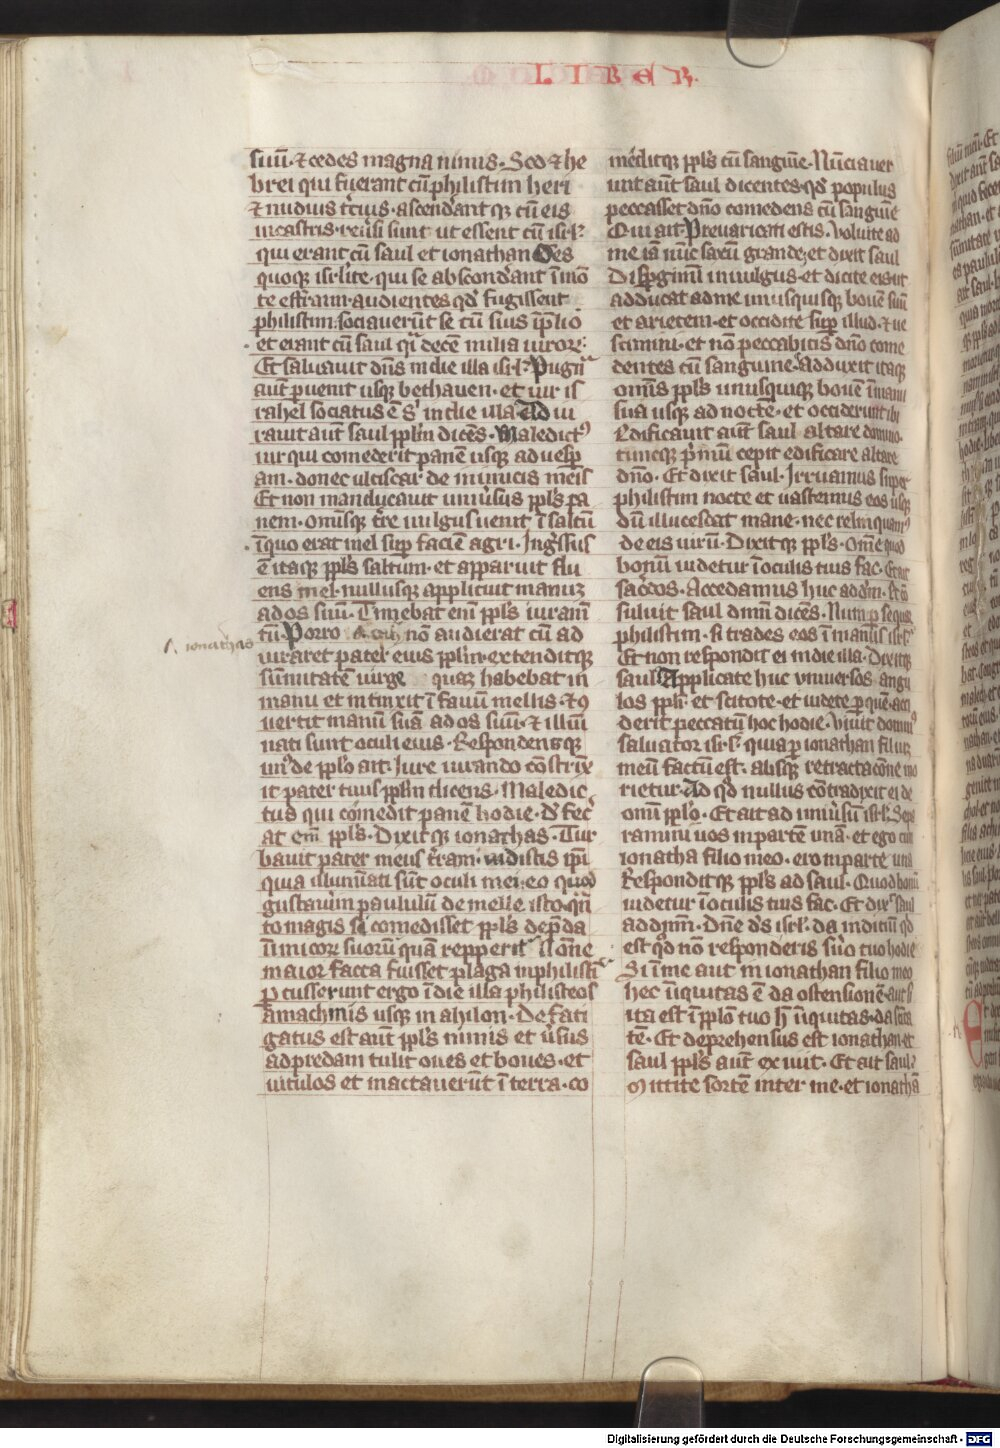 LIBER
suū· ⁊ cedes magna nimis· Sed ⁊ he
brei qui fuerant cū philistim heri
⁊ nudius t̄cius· ascend̄ant q̄ cū eis
in castris· reūsi sunt ut essent cū isrł·
qui erant cū saul et ionathan Om̄s
quoq̄ isrłite· qui se abscond̄ant ī mō
te effraim· audientes qd̄ fugissent
philistim· sociauerūt se cū suis ī p̄lio
et erant cū saul q̄i decē milia uiroꝝ·
Et saluauit dn̄s in die illa isrł· Pugn̄
aūt ꝑuenit usq̄ bethauen· et uir is
rahel sociatus ē s̄ in die illa· Ad iu
rauit aūt saul pp̄lm dicēs· Maledict᷒
uir qui comederit panē usq̄ ad uesꝑ
am· donec ulciscar de inimicis meis
Et non manducauit uniūsus pp̄ls pa
nem· omīsq̄ t̄re uulgus uenit ī saltū
ī quo erat mel suꝑ faciē agri· Ing̃ssus
ē itaq̄ pp̄ls saltum· et apparuit flu
ens mel· nullusq̄ applicuit manuꝫ
ad os suū· Timebat eni̅ pp̄ls iuram̄
tū· Porro nō audierat cū ad
ionathas
iuraret pater eius pp̄lm· extenditq̄
sūmitatē uirge quaꝫ habebat in
manu et intinxit ī fauū mellis· ⁊ ꝯ
uertit manū suā ad os suū· ⁊ illūi
nati sunt oculi eius· Respondensq̄
un᷒ de pp̄lo ait· Iure iurando cōstrīx
it pater tuus pp̄lm dicens· Maledic
tus qui comedit panē hodie· d̄fec̄
at em̄ pp̄ls· Dixitq̄ ionathas· Tur
bauit pater meus t̄ram· uidistis ip̄i
quia illumīati sūt oculi mei· eo quod
gustauim paululū de melle isto· q̄n
to magis si comedisset pp̄ls de p̄da
īimicoꝝ suorū quā repperit· Nōne
maior facta fuisset plaga in philistī·
ꝑcusserunt ergo ī die illa philisteos
a machmis usq̄ in ahilon· Defati
gatus est aūt pp̄ls nimis et ūsus
ad predam tulit oues et boues· et
uitulos et mactauerūt ī terra· co
meditq̄ pp̄ls cū sanguīe· Nūciauer
unt aūt saul dicentes· qd̄ populus
peccasset dn̄o comedens cū sanguīe
Qui ait· Preuaricati estis· Voluite ad
me iā nūc saxū grande· et dixit saul
Dispgimī in uulgus· et dicite eis· ut
adducat ad me unusquisq̄ bouē suū
et arietem· et occidite suꝑ illud· ⁊ ue
scimini· et nō peccabitis dn̄o come
dentes cū sanguine· Adduxit itaq̄
omīs pp̄ls unusquisq̄ bouē ī manu
sua usq̄ ad noctē· et occiderunt ibi
Edificauit aūt saul altare domino·
tuncq̄ p̄mū cepit edificare altare
dn̄o· Et dixit saul· Irruamus super
philistim nocte et uastemus eos usq̄
dū illucescat mane· nec relinquam᷒
de eis uirū· Dixitq̄ pp̄ls· Omē quod
bonū uidetur ī oculis tuis fac· Et ait
sac̄dos· Accedamus huc ad dm̄· Et ꝯ
suluit saul dm̄m dicēs· Num ꝑsequar
philistim· si trades eos ī manus isrł·
Et non respondit ei in die illa· Dixitq̄
saul· Applicate huc vniuersos angu
los pp̄li· et scitote· et uidete ꝑ quē acci
derit peccatū hoc hodie· Viuit domin᷒
saluator isrł· quia ꝑ ionathan filiuꝫ
meū factū est· absq̄ retractacōne mo
rietur· Ad qd̄ nullus cōtradixit ei de
omī pp̄lo· Et ait ad uniūsū isrł· Sepa
ramini uos in partē unā· et ego cum
ionatha filio meo· ero in parte una
Responditq̄ pp̄ls ad saul· Quod bonū
uidetur ī oculis tuis fac· Et dix̄ saul
ad dm̄m· Dn̄e ds̄ isrł· da indiciū qd̄
est qd̄ nō responderis s̄uo tuo hodie
Si ī me aut in ionathan filio meo
hec īiquitas ē da ostensionē· aut si
ita est ī pp̄lo tuo h̄ īiquitas· da sc̄ita
tē· Et deprehensus est ionathan et
saul pp̄ls aūt exiuit· Et ait saul·
Mittite sortē inter me· et ionathā
Digitalisierung gefördert durch die Deutsche Forschungsgemeinschaft - DFG